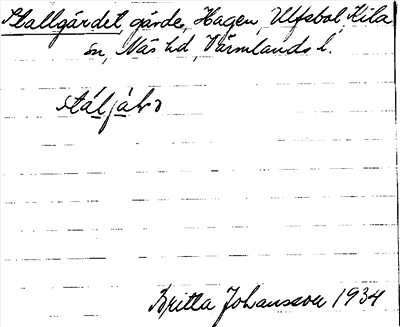 Stallgärdet, gärde, Hagen, Ulfsbol, Kila
sn, Näs hd, Värmlands l.
Britta Johansson 1934